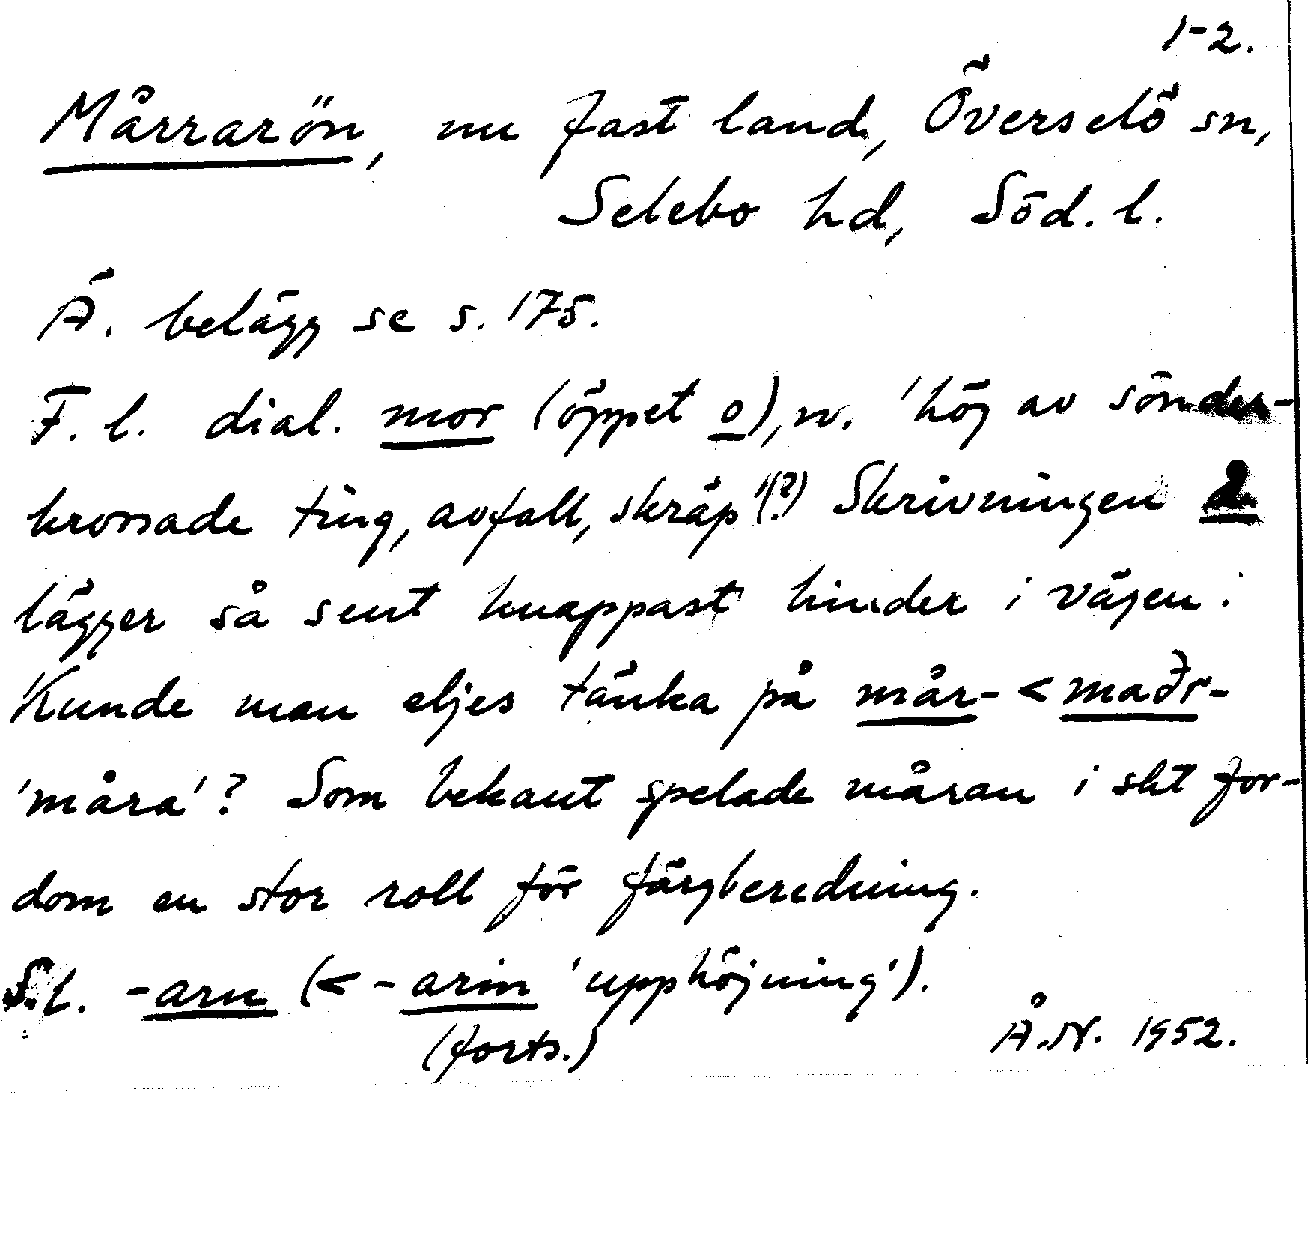 1-2.
Mårrarön, nu fast land, Överselö sn,
Selebo hd, Söd. l.
Ä. belägg se s. 175.
F. l. dial. mor (öppet o), n. 'hög av sönder-
krossade ting, avfall, skräp'(?) Skrivningen å
lägger så sent knappast hinder i vägen.
Kunde man eljes tänka på mår- < maðr-
'måra'? Som bekant spelade måran i sht for-
dom en stor roll för färgberedning.
S.l. -arn (< -arin 'upphöjning').
(forts.)
Å.N. 1952.